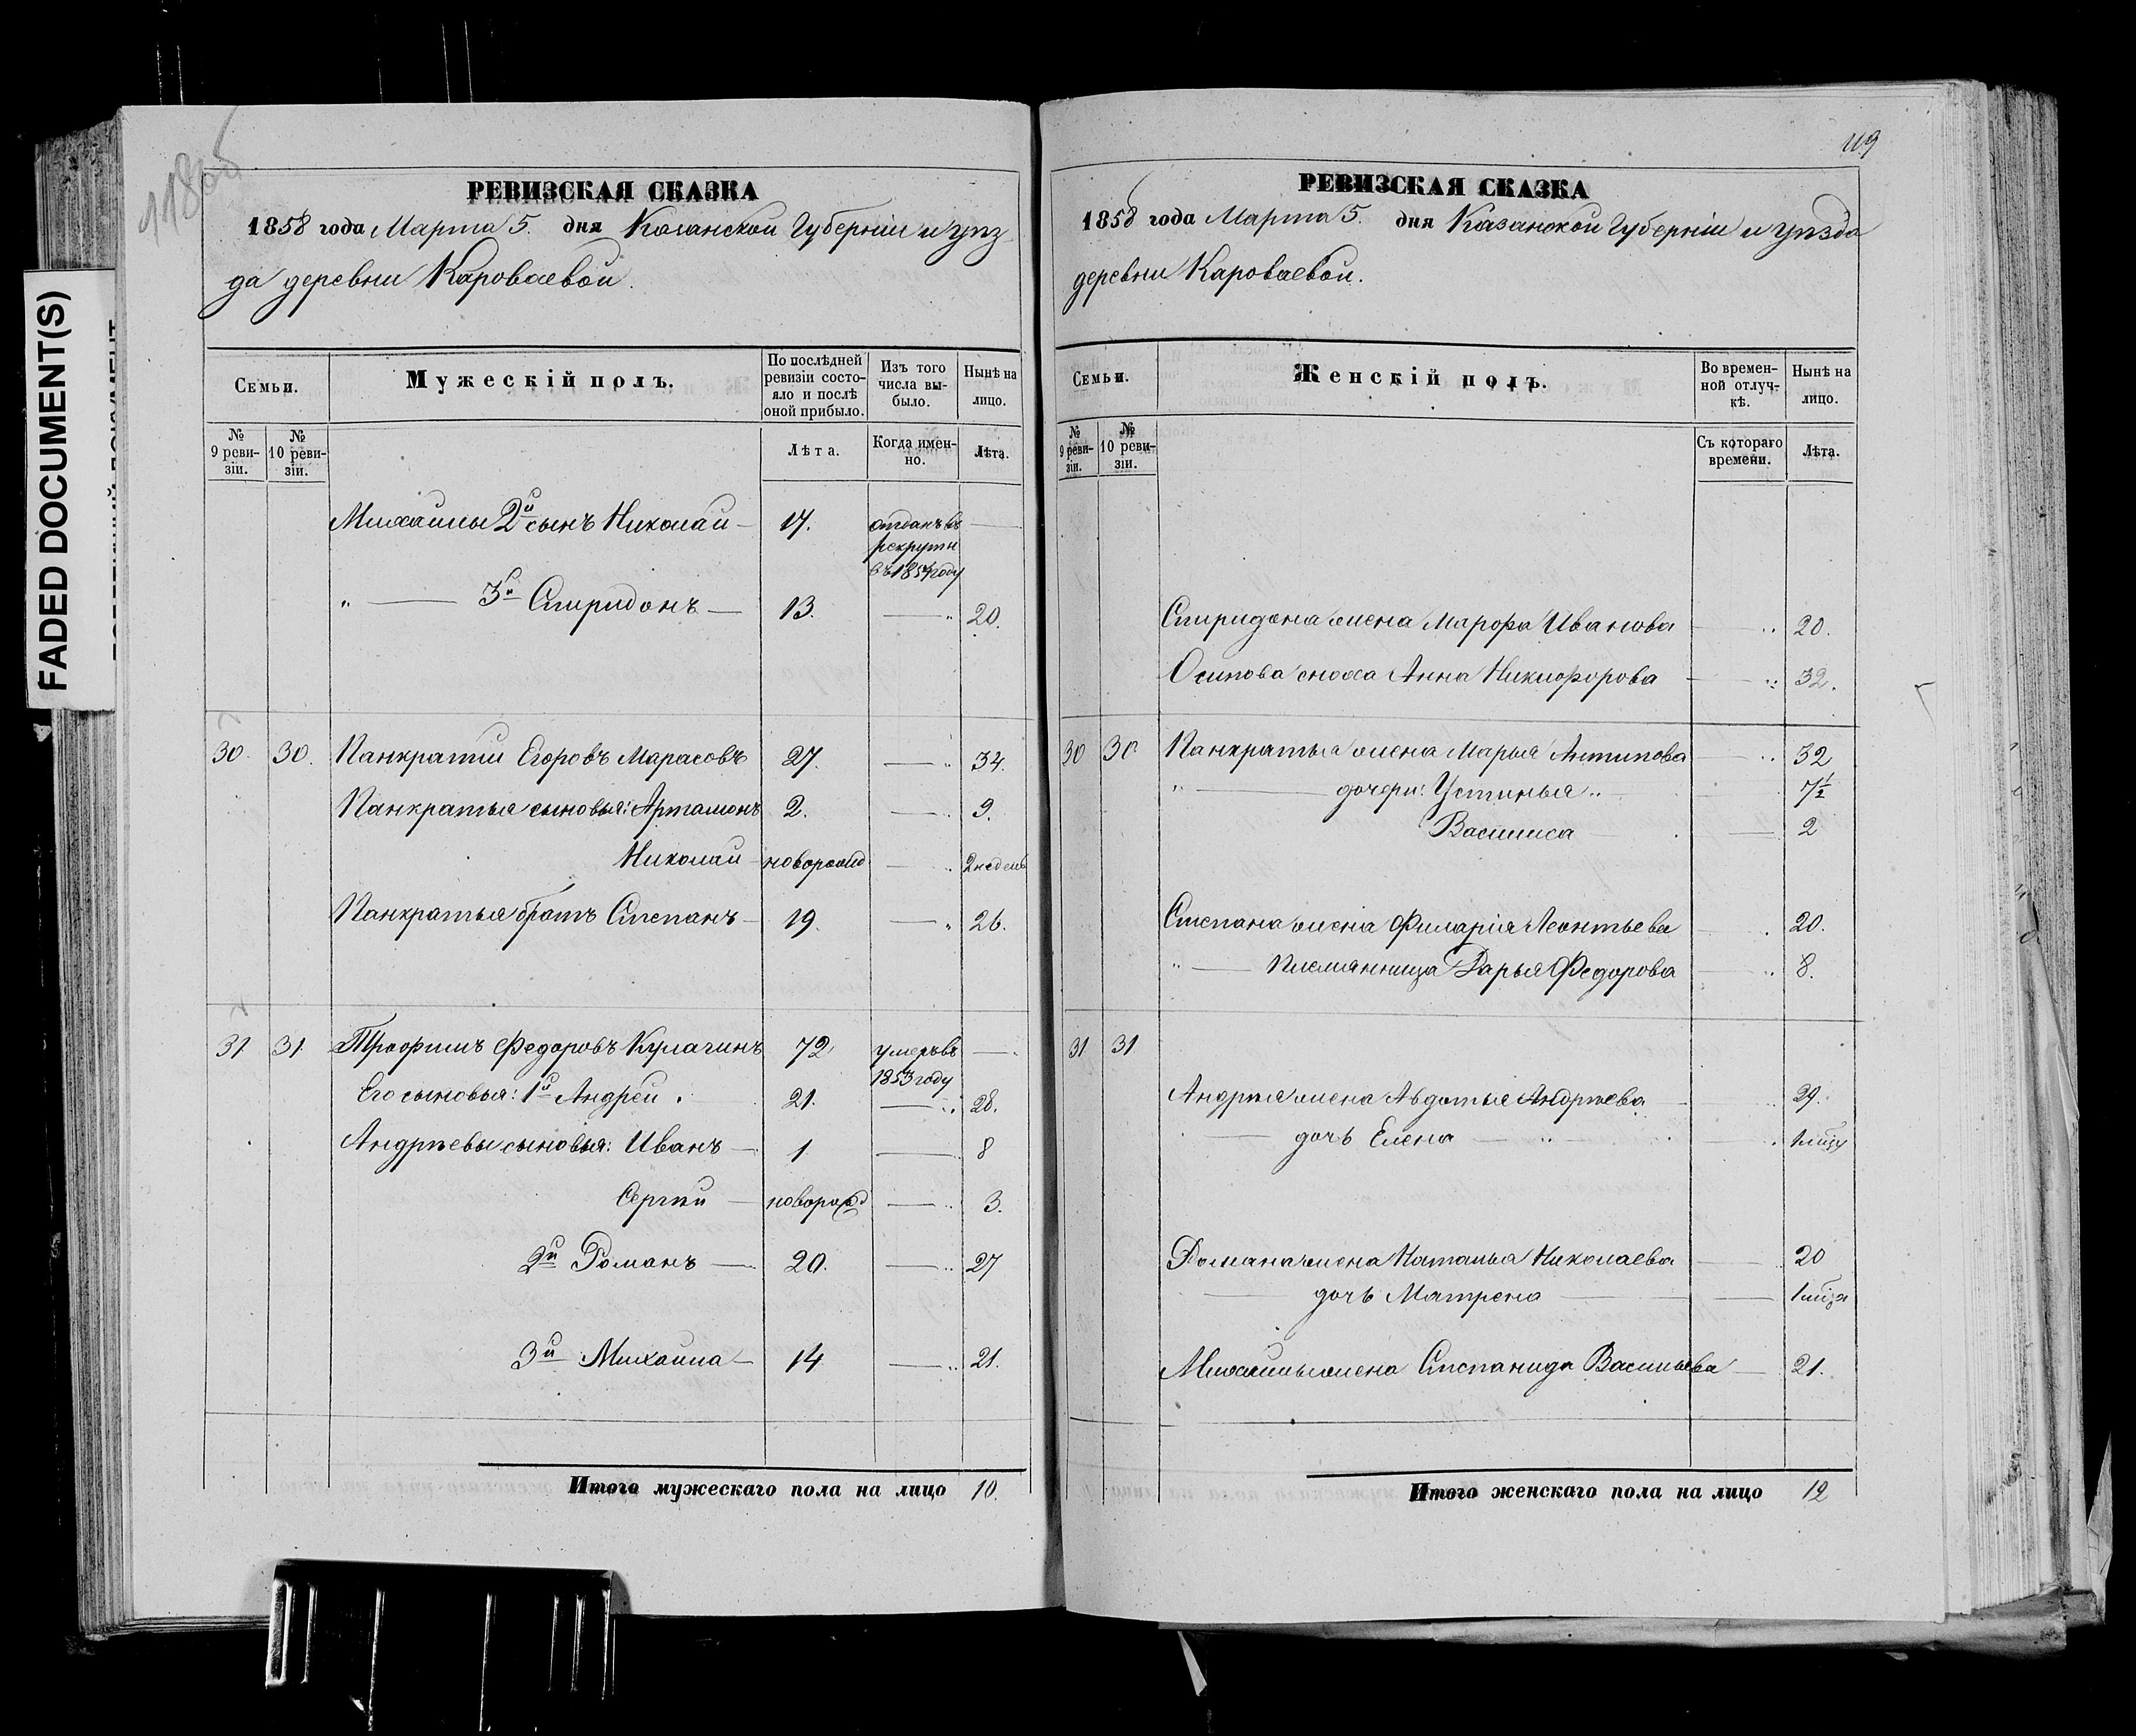 FADED DOCUMENT(S)
118об
РЕВИЗСКАЯ СКАЗКА
1858 года Марта 5. дня Казанской Губерніи и уѣз
да деревни Короваевой.
Семьи.
Мужескій полъ.
По послѣдней ревизіи состо-
яло и послѣ оной прибыло.
Изъ того числа вы-
было.
Нынѣ на лицо.
№ 9 реви-
зіи.
№ 10 реви-
зіи.
Лѣта.
Когда имен-
но.
Лѣта.
Михайлы 2й сынъ Николай — 17. отданъ въ —
рекруты
въ 1854 году
" — 3й Спиридонъ — 13. — " 20.
30. 30. Панкратій Егоровъ Марасовъ 27. — " 34.
Панкратья сыновья: Артамонъ 2. — " 9.
Николай — новорожд — " 2 недель
Панкратья братъ Степанъ — 19. — " 26.
31 31. Трофимъ Федоровъ Кулагинъ 72 умеръ въ —
1853 году
Его сыновья: 1й Андрей . 21. — " 28.
Андрѣевы сыновья: Иванъ — 1 — 8
Сергѣй — новорожд — " 3.
2й Романъ — 20. — " 27
3й Михаила — 14 — " 21.
Итого мужескаго пола на лицо 10.
119
РЕВИЗСКАЯ СКАЗКА
1858 года Марта 5. дня Казанской Губерніи и уѣзда
деревни Короваевой.
Семьи.
Женскій полъ.
Во времен-
ной отлуч-
кѣ.
Нынѣ на лицо.
№ 9 реви-
зіи.
№ 10 реви-
зіи.
Съ котораго времени.
Лѣта.
Спиридона жена Марфа Иванова — " 20.
Осипова сноха Анна Никифорова — " 32.
30 30 Панкратья жена Марья Антипова — " 32
" — дочери: Устинья " 7½
Василиса — 2
Степана жена Филарія Леонтьева — " 20.
" — племянница Дарья Федорова — " 8.
31 31
Андрея жена Авдотья Андрѣева — " 29.
— дочь Елена — " — 1 мѣсяц
Романа жена Наталья Николаева — 20
— дочь Матрена — 1 мѣсяц
Михайлы жена Степанида Васильева — 21.
Итого женскаго пола на лицо 12